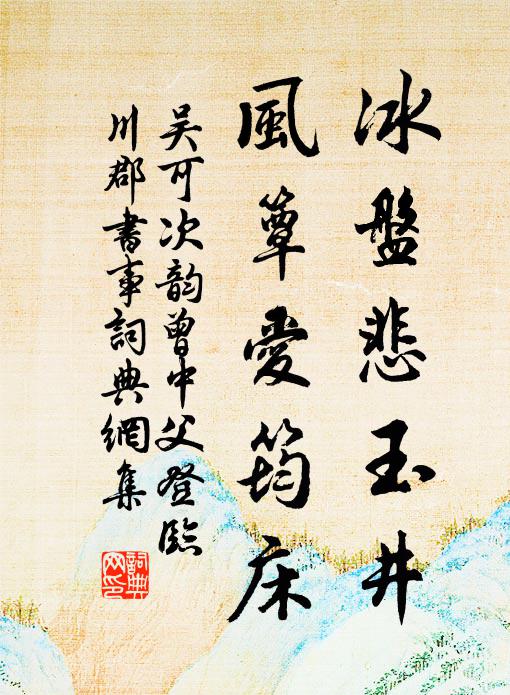 冰盤悲玉井
風簟愛筠床
吳可次韵曾中父登臨
川郡書事詞典網集
詞典网印